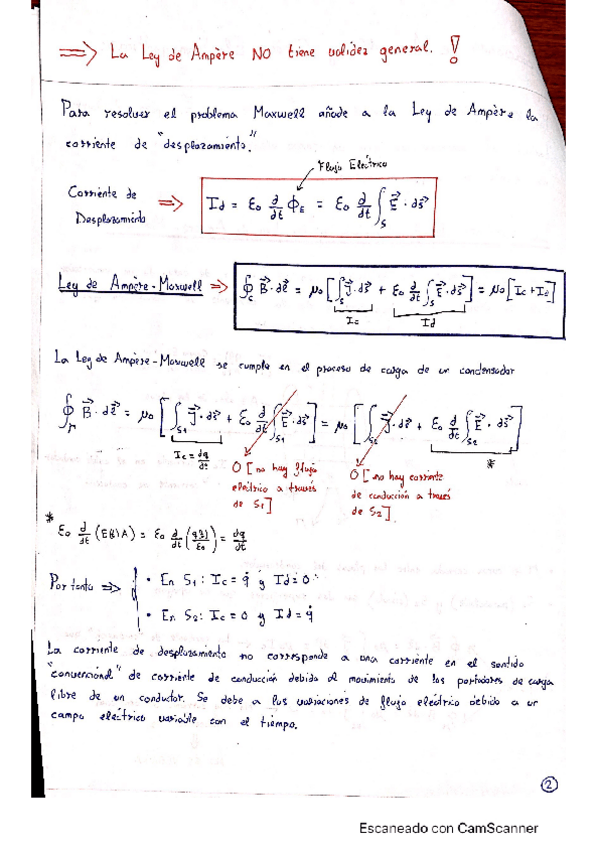 => La Ley de Ampère NO tiene validez general. !
Para resolver el problema Maxwell añade a la Ley de Ampère la
corriente de "desplazamiento."
Flujo Eléctrico
Corriente de
Desplazamiento => Id = ε₀ d/dt Φ_E = ε₀ d/dt ∫_S E⃗ · ds⃗
Ley de Ampère-Maxwell => ∮_C B⃗ · dl⃗ = μ₀ [∫_S J⃗ · ds⃗ + ε₀ d/dt ∫_S E⃗ · ds⃗] = μ₀ [Ic + Id]
Ic Id
La Ley de Ampère-Maxwell se cumple en el proceso de carga de un condensador
∮_Γ B⃗ · dl⃗ = μ₀ [∫_S1 J⃗ · ds⃗ + ε₀ d/dt ∫_S1 E⃗ · ds⃗] = μ₀ [∫_S2 J⃗ · ds⃗ + ε₀ d/dt ∫_S2 E⃗ · ds⃗]
Ic = dq/dt *
0 [no hay flujo
eléctrico a través
de S1]
0 [no hay corriente
de conducción a través
de S2]
* ε₀ d/dt (E(t)A) = ε₀ d/dt = dq/dt
Por tanto =>
• En S1: Ic = q̇ y Id = 0
• En S2: Ic = 0 y Id = q̇
La corriente de desplazamiento no corresponde a una corriente en el sentido
"convencional" de corriente de conducción debida al movimiento de los portadores de carga
libre de un conductor. Se debe a las variaciones de flujo eléctrico debido a un
campo eléctrico variable con el tiempo.
2
Escaneado con CamScanner